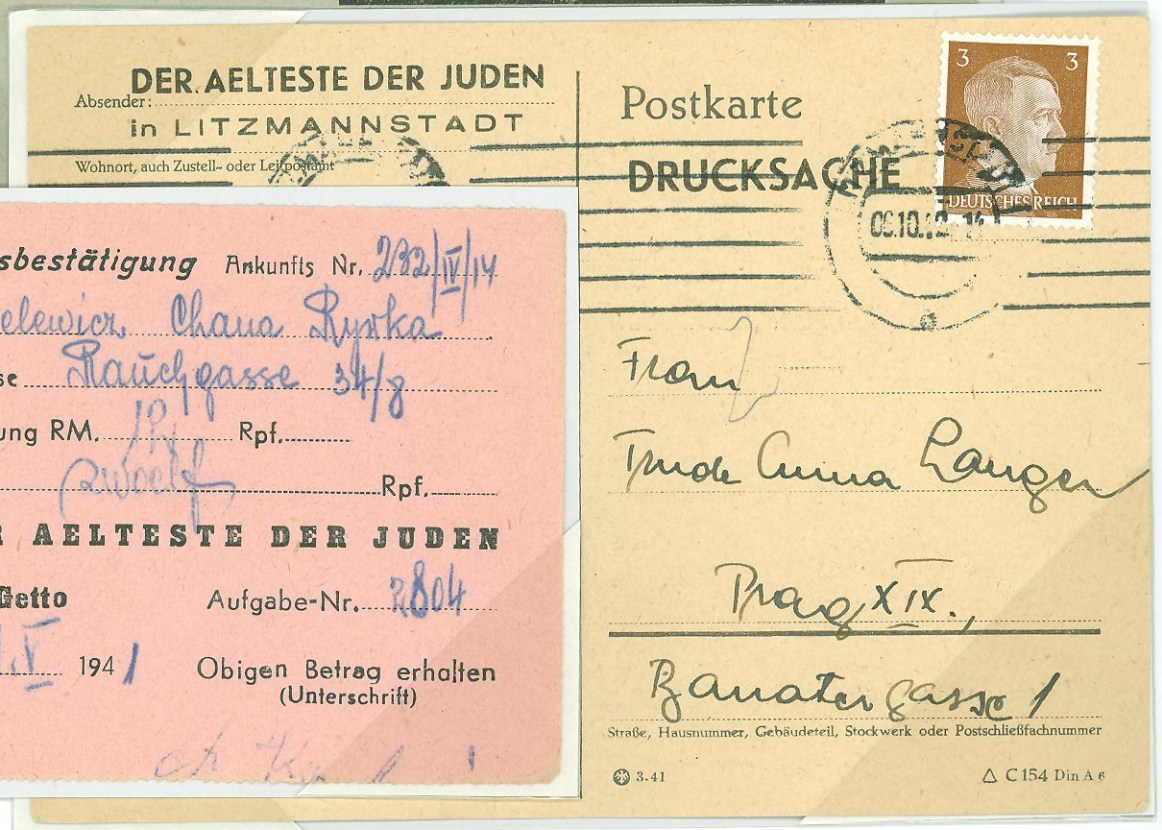 DER AELTESTE DER JUDEN
Absender:
in LITZMANNSTADT
Wohnort, auch Zustell- oder Leitpostamt
Postkarte
DRUCKSACHE
3 3
DEUTSCHES REICH
Frau
Trude Anna Langer
Prag XIX.,
Banatergasse 1
Straße, Hausnummer, Gebäudeteil, Stockwerk oder Postschließfachnummer
3.41
C 154 Din A 6
sbestätigung Ankunfts Nr. 232/IV/14
elewicz Chana Ryfka
se Rauchgasse 34/8
ung RM. Rpf.
zwoelf Rpf.
R AELTESTE DER JUDEN
Getto Aufgabe-Nr. 2804
V 1941 Obigen Betrag erhalten
(Unterschrift)